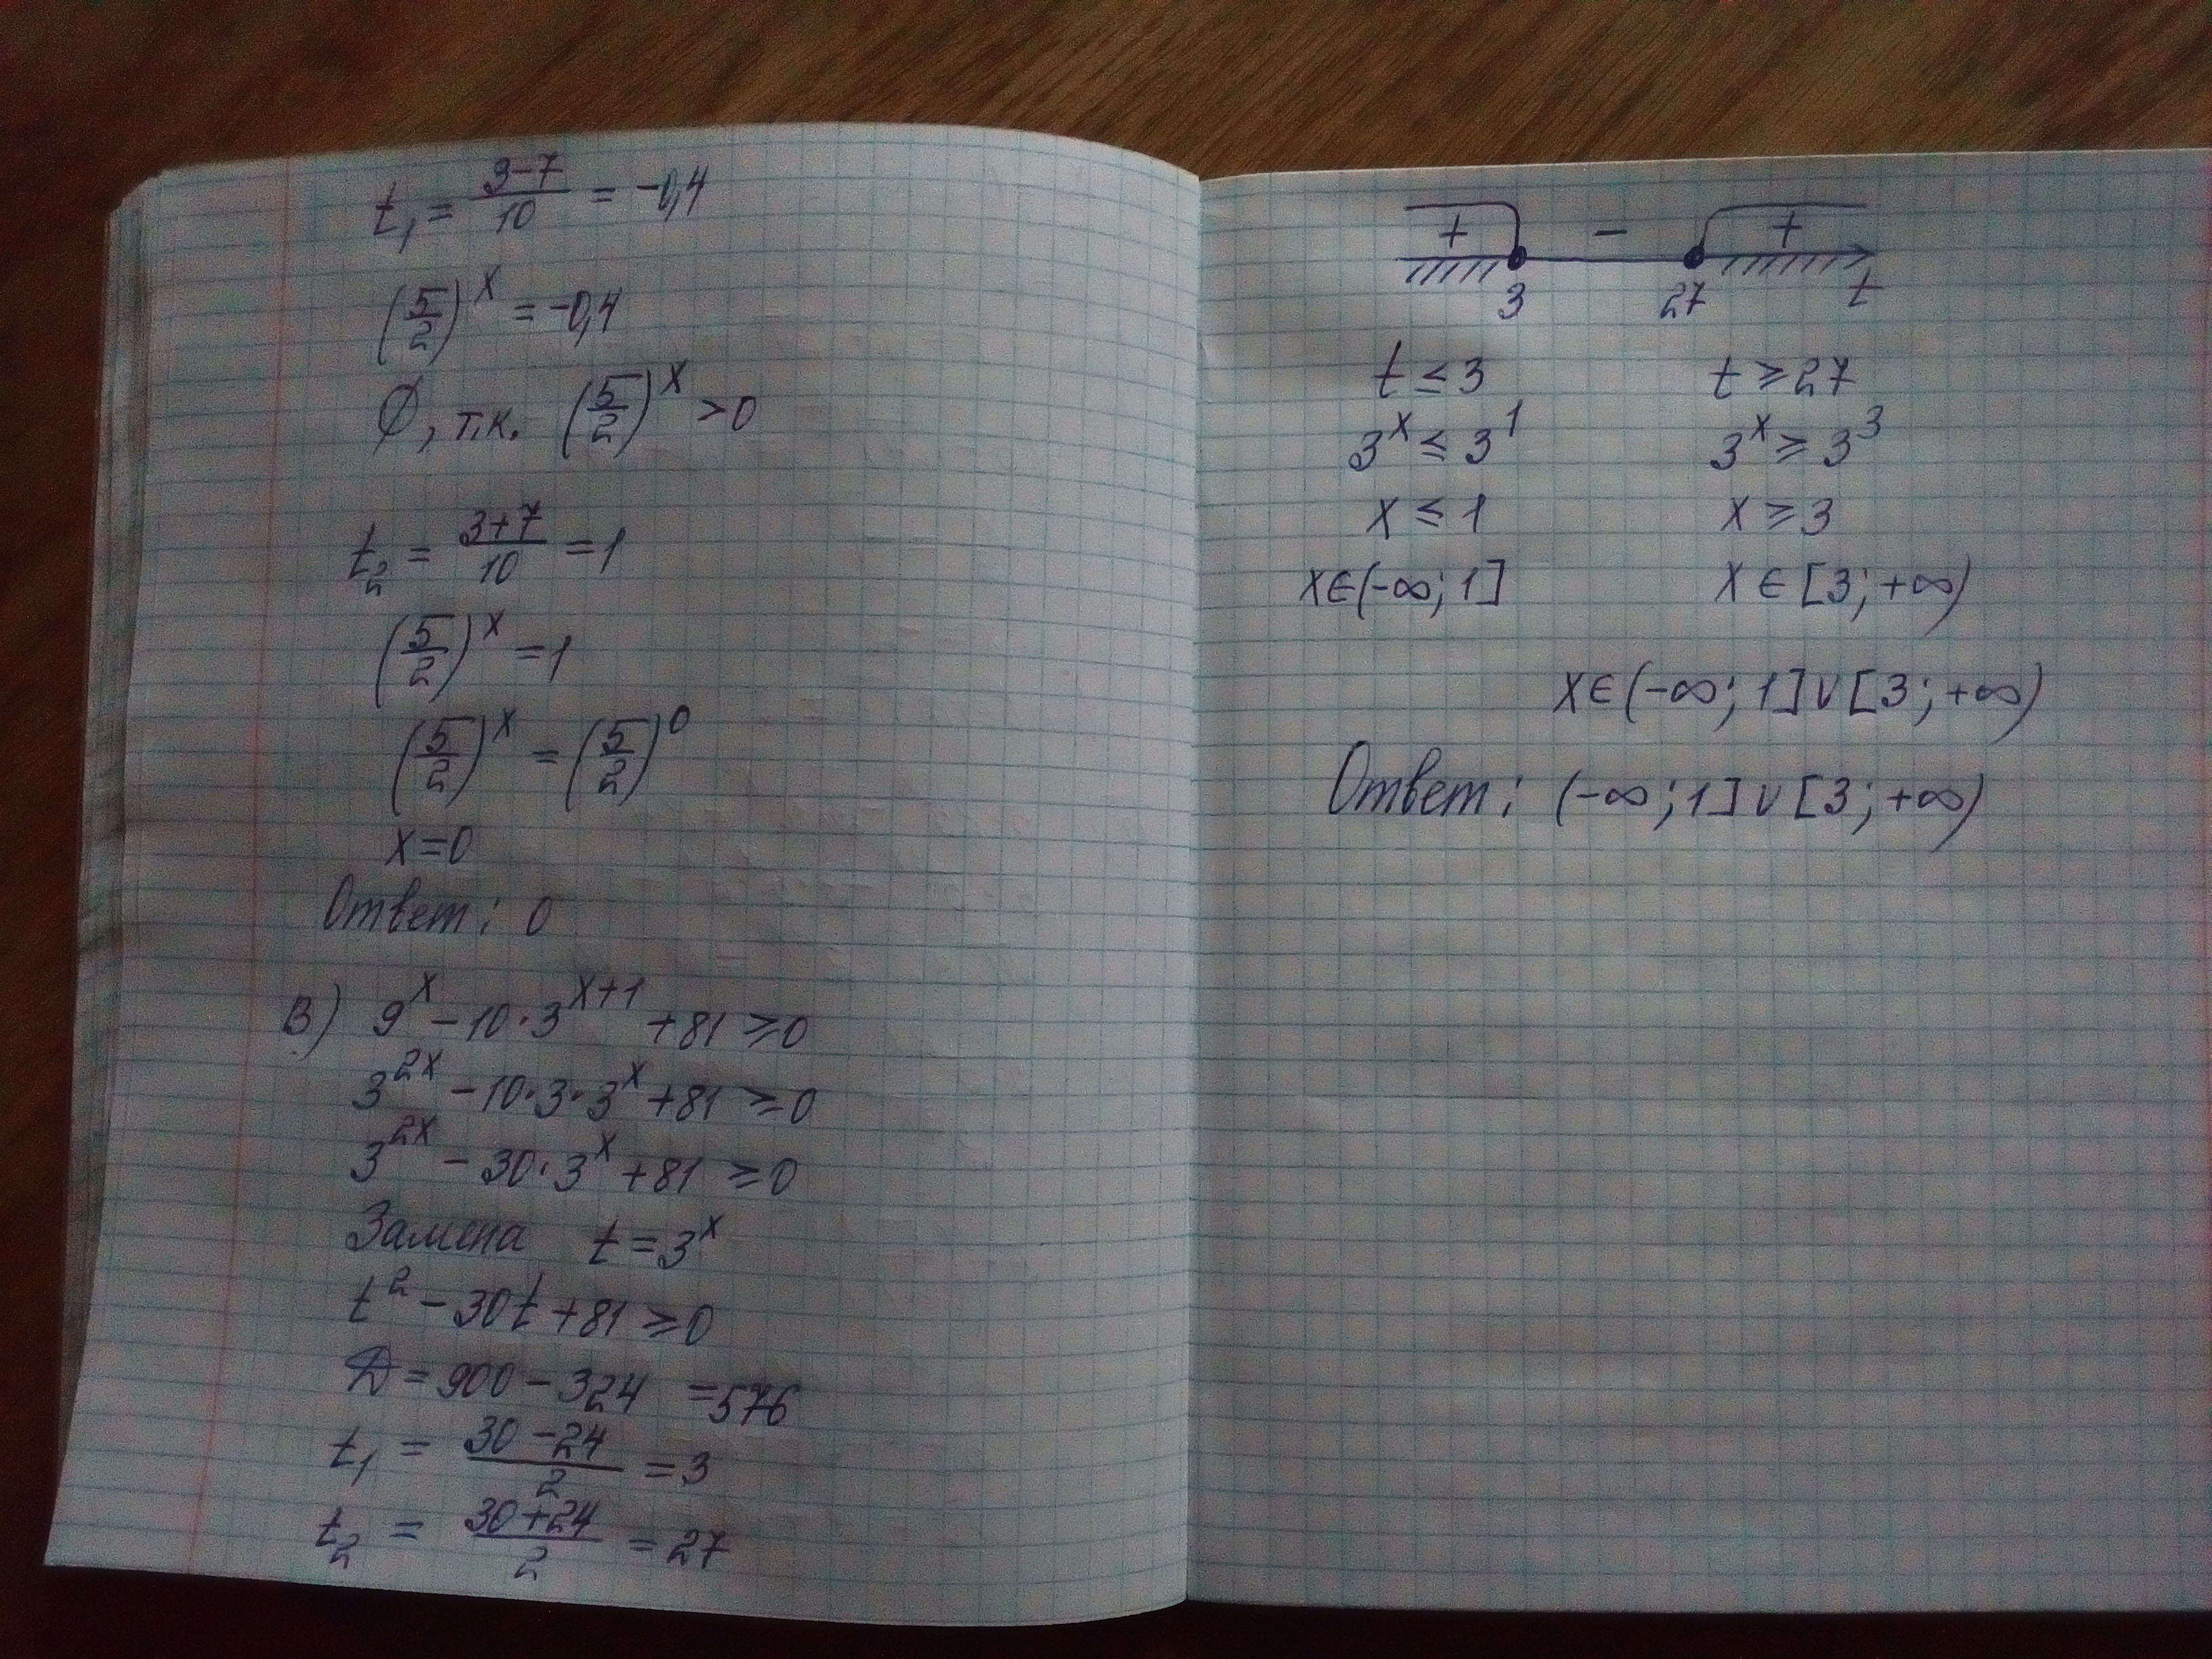 t₁ = (3-7)/10 = -0,4
(5/2)^x = -0,4
∅, т.к. (5/2)^x > 0
t₂ = (3+7)/10 = 1
(5/2)^x = 1
(5/2)^x = (5/2)^0
x=0
Ответ: 0
В) 9^x - 10·3^(x+1) + 81 ≥ 0
3^(2x) - 10·3·3^x + 81 ≥ 0
3^(2x) - 30·3^x + 81 ≥ 0
Замена t = 3^x
t² - 30t + 81 ≥ 0
D = 900 - 324 = 576
t₁ = (30-24)/2 = 3
t₂ = (30+24)/2 = 27
+ - +
3 27 t
t ≤ 3 t ≥ 27
3^x ≤ 3^1 3^x ≥ 3^3
x ≤ 1 x ≥ 3
x∈(-∞; 1] x ∈ [3; +∞)
x∈(-∞; 1]∪[3; +∞)
Ответ: (-∞; 1]∪[3; +∞)